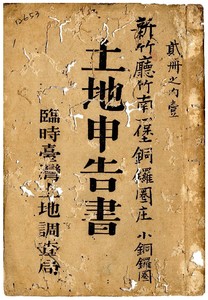 貳册之內壹
新竹廳竹南一堡銅鑼圈庄 小銅鑼圈
土地申告書
臨時臺灣土地調查局
12653